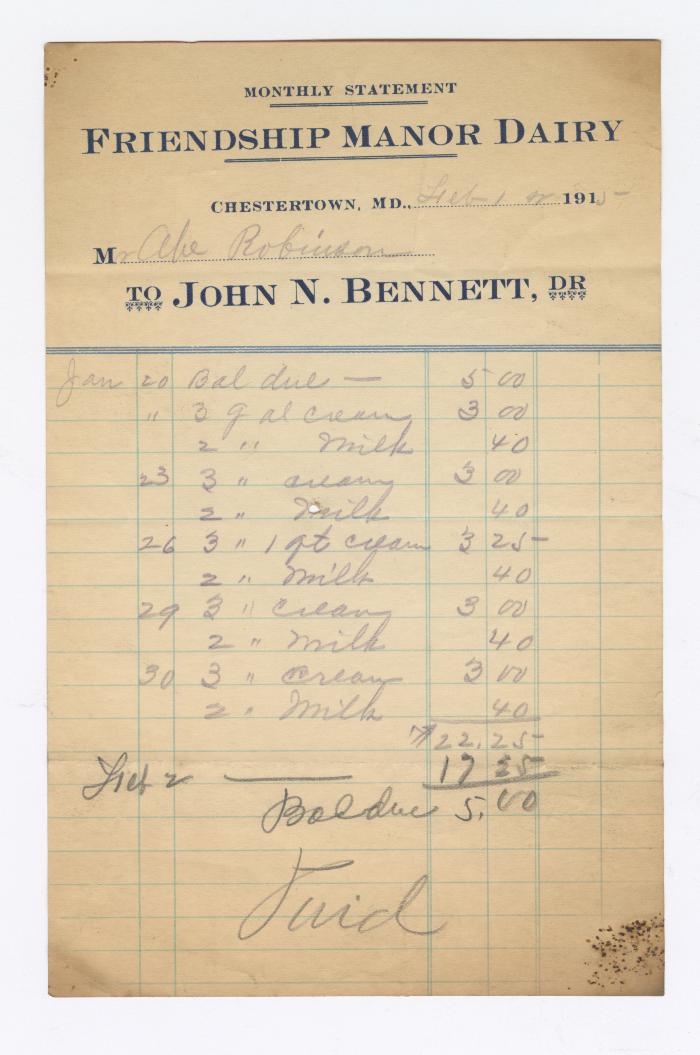 MONTHLY STATEMENT
FRIENDSHIP MANOR DAIRY
CHESTERTOWN, MD., Feb 1 1915
Mr Abe Robinson
TO JOHN N. BENNETT, DR
Jan 20 Bal due — 5 00
" 3 gal cream 3 00
2 " Milk 40
23 3 " cream 3 00
2 " Milk 40
26 3 " 1 qt cream 3 25
2 " Milk 40
29 3 " cream 3 00
2 " Milk 40
30 3 " cream 3 00
2 " Milk 40
22.25
Feb 2 — 17 25
Bal due 5.00